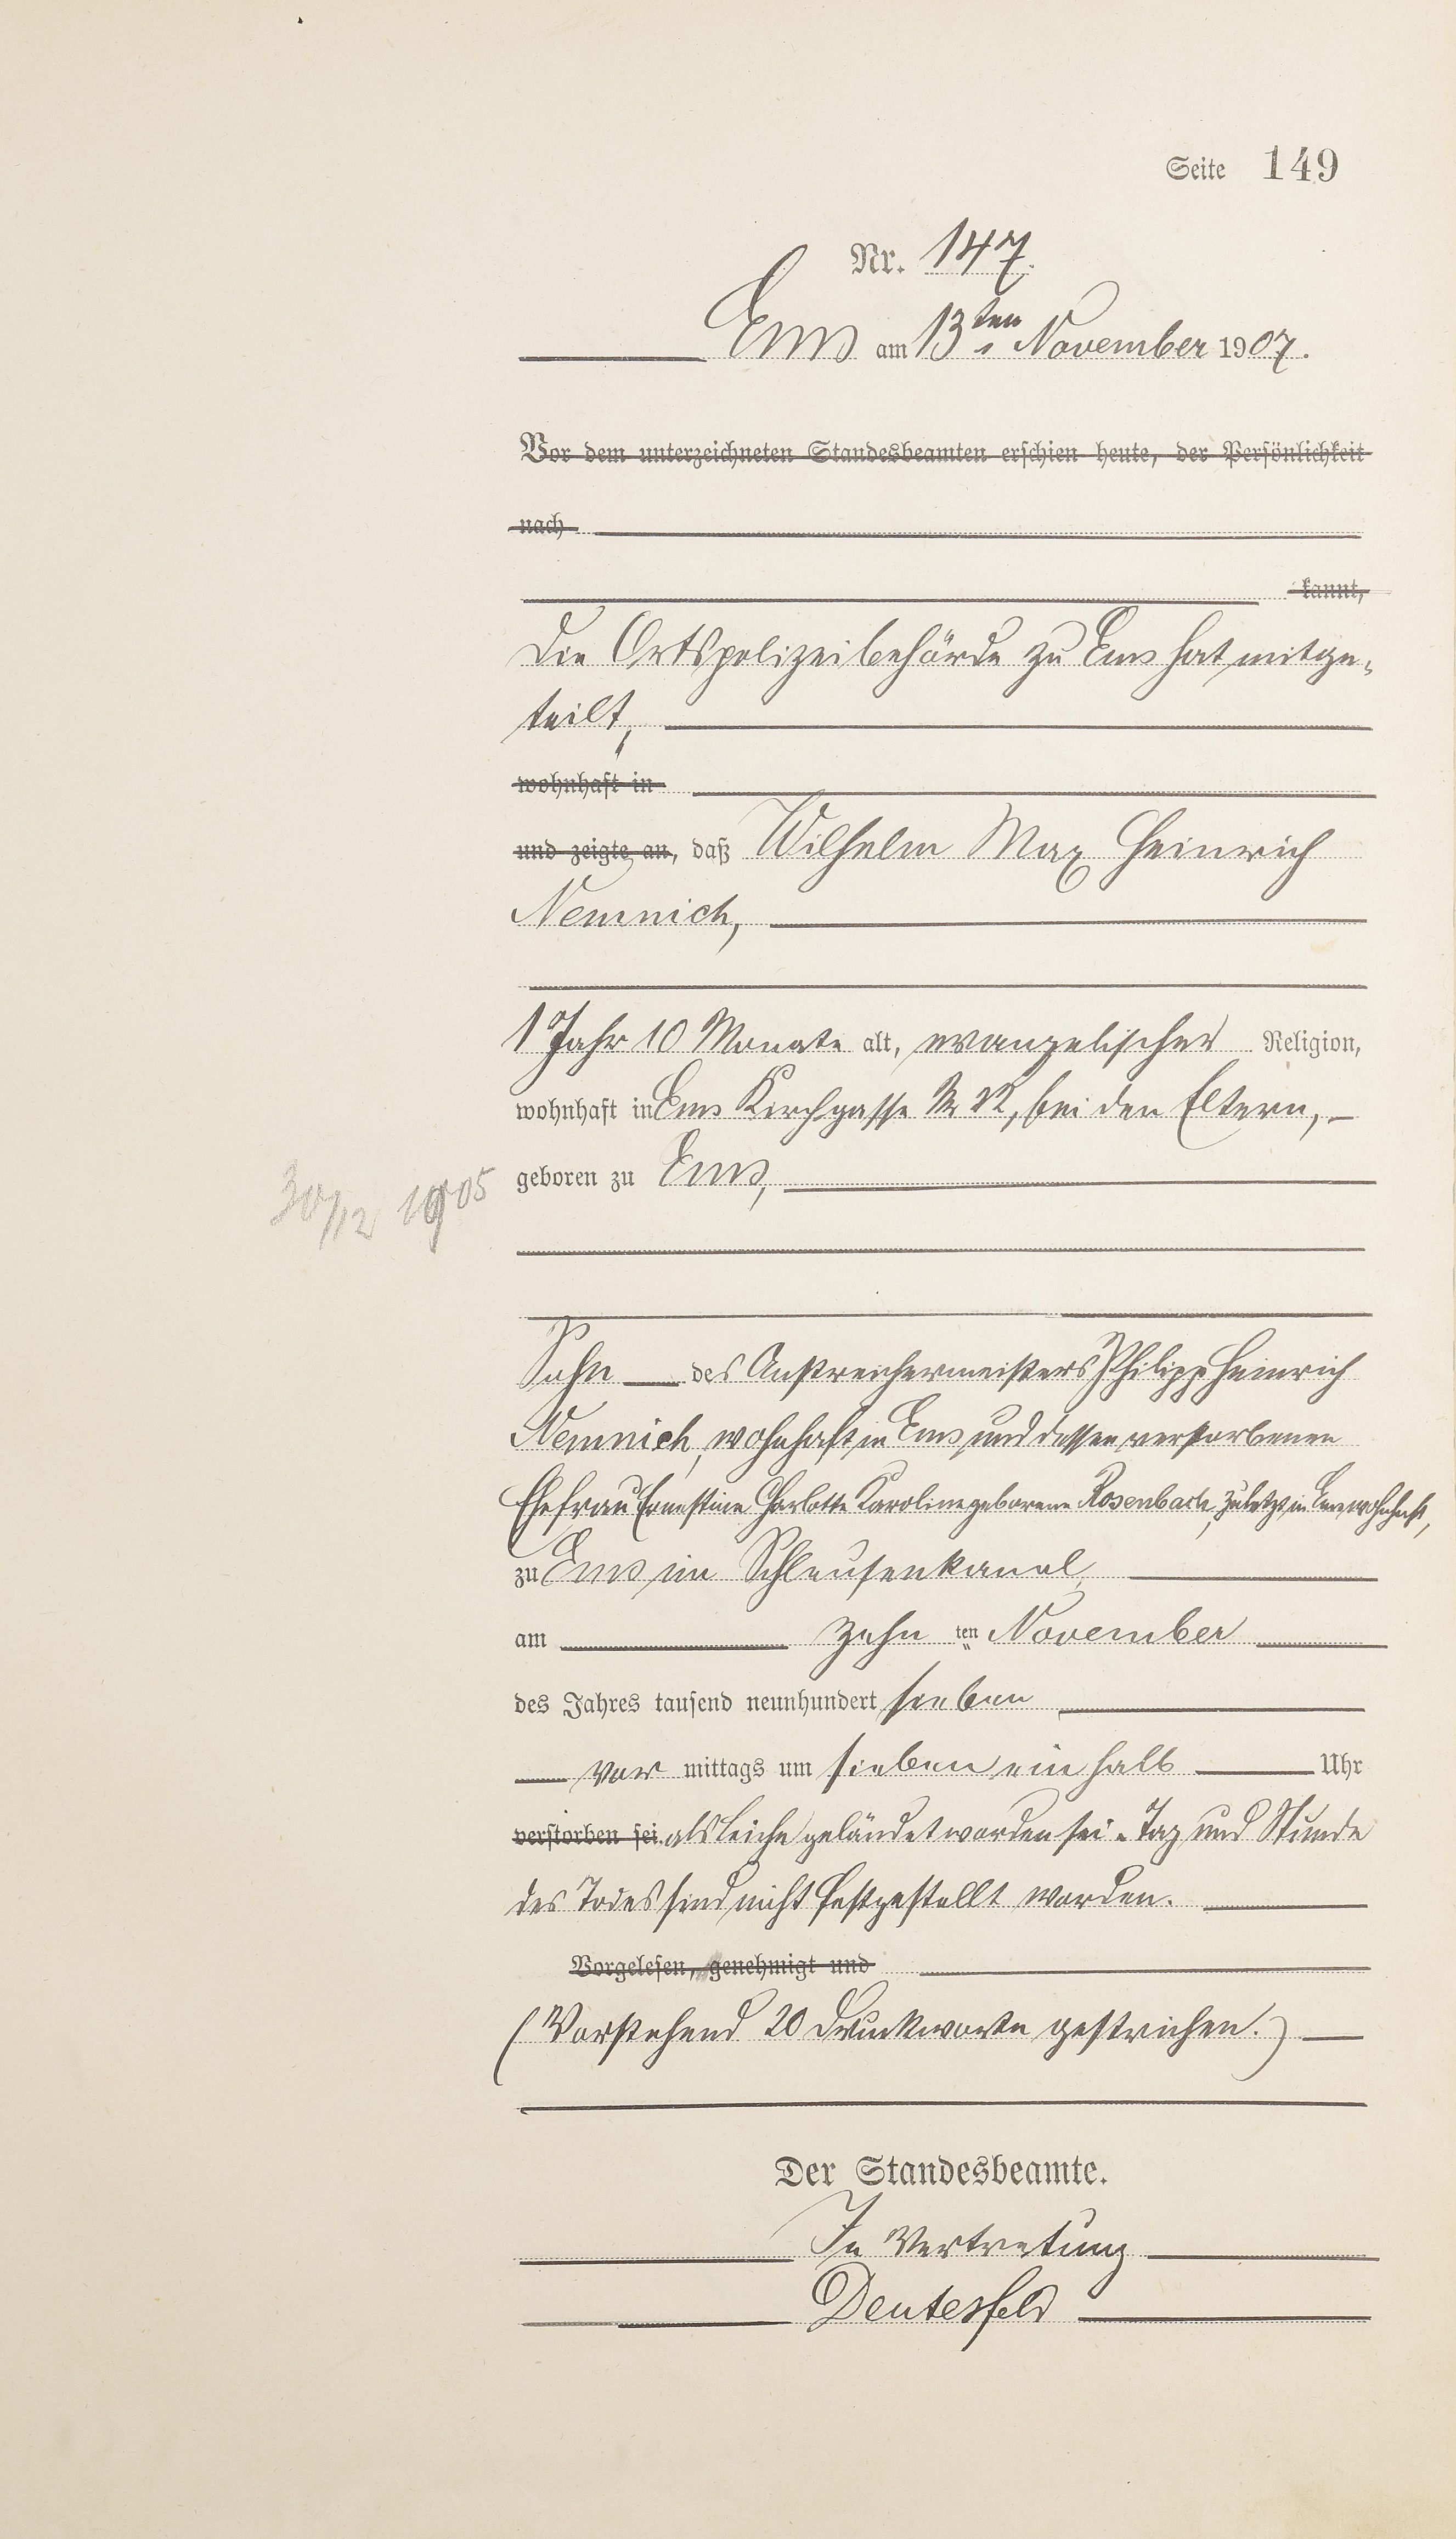 Seite 149
Nr. 147.
Ems am 13ten November 1907.
Vor dem unterzeichneten Standesbeamten erschien heute, der Persönlichkeit
nach
kannt,
Die Ortspolizeibehörde zu Ems hat mitge-
teilt,
wohnhaft in
und zeigte an, daß Wilhelm Max Heinrich
Nemnich,
1 Jahr 10 Monate alt, evangelischer Religion,
wohnhaft in Ems Kirchgasse bei den Eltern,
geboren zu Ems,
30/12 1905
Sohn des Anstreichermeisters Philipp Heinrich
Nemnich, wohnhaft in Ems und dessen verstorbenen
Ehefrau Ernestine Charlotte Karoline geborene Rosenbach, zuletzt in Ems wohnhaft,
zu Ems im Schleusenkanal
am zehn ten November
des Jahres tausend neunhundert sieben
vor mittags um sieben ein halb Uhr
verstorben sei. als Leiche geländet worden sei. Tag und Stunde
des Todes sind nicht festgestellt worden.
Vorgelesen, genehmigt und
(Vorstehend 20 Druckworte gestrichen.)
Der Standesbeamte.
In Vertretung
Deutesfeld